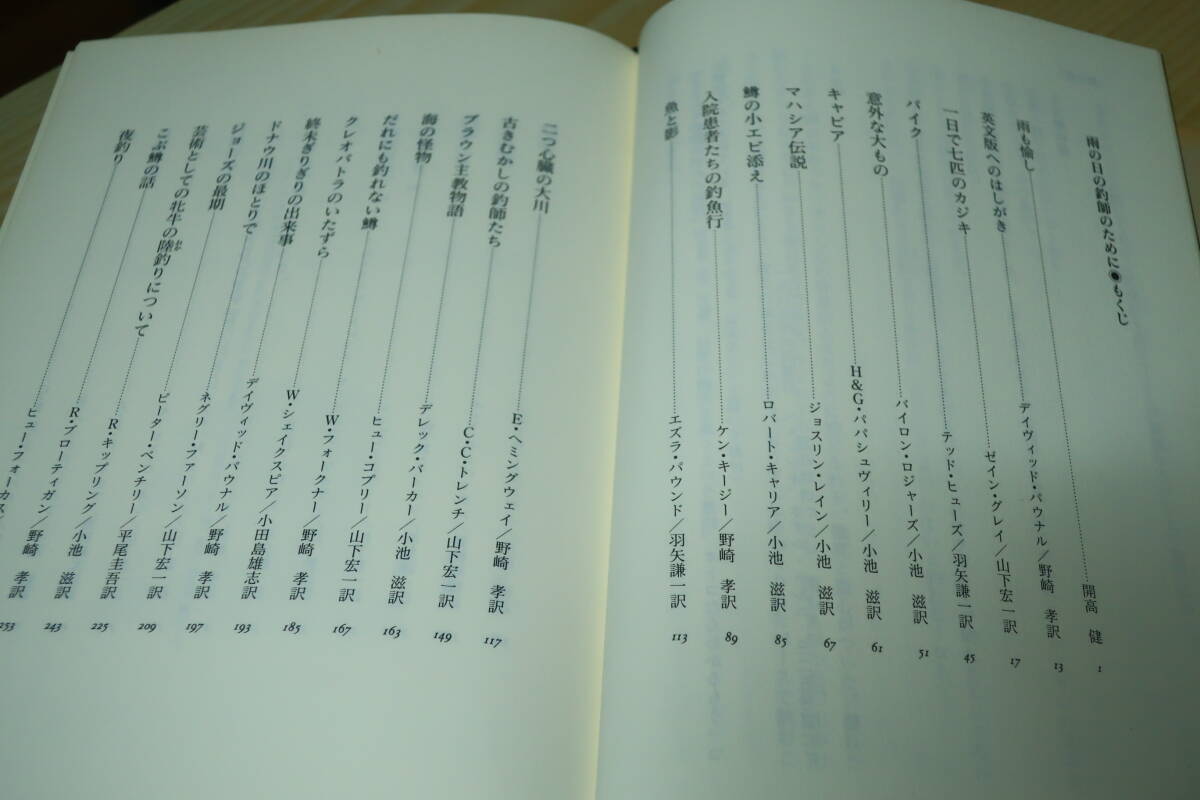 雨の日の釣師のために●もくじ
雨も愉し……開高 健 1
英文版へのはしがき……デイヴィッド・パウナル/野崎 孝訳 13
一日で七匹のカジキ……ゼイン・グレイ/山下宏一訳 17
パイク……テッド・ヒューズ/羽矢謙一訳 45
意外な大もの……バイロン・ロジャーズ/小池 滋訳 51
キャビア……H&G・パパシュヴィリー/小池 滋訳 61
マハシア伝説……ジョスリン・レイン/小池 滋訳 67
鱒の小エビ添え……ロバート・キャリア/小池 滋訳 85
入院患者たちの釣魚行……ケン・キージー/野崎 孝訳 89
魚と影……エズラ・パウンド/羽矢謙一訳 113
二つ心臓の大川……E・ヘミングウェイ/野崎 孝訳 117
古きむかしの釣師たち……C・C・トレンチ/山下宏一訳 149
ブラウン主教物語……デレック・パーカー/小池 滋訳 163
海の怪物……ヒュー・コプリー/山下宏一訳 167
だれにも釣れない鱒……W・フォークナー/野崎 孝訳 185
クレオパトラのいたずら……W・シェイクスピア/小田島雄志訳 193
終末ぎりぎりの出来事……デイヴィッド・パウナル/野崎 孝訳 197
ドナウ川のほとりで……ネグリー・ファーソン/山下宏一訳 209
ジョーズの最期……ピーター・ベンチリー/平尾圭吾訳 225
芸術としての牝牛の陸釣りについて……R・キップリング/小池 滋訳 243
こぶ鱒の話……R・ブローティガン/野崎 孝訳 253
夜釣り……ヒュー・フォーカス